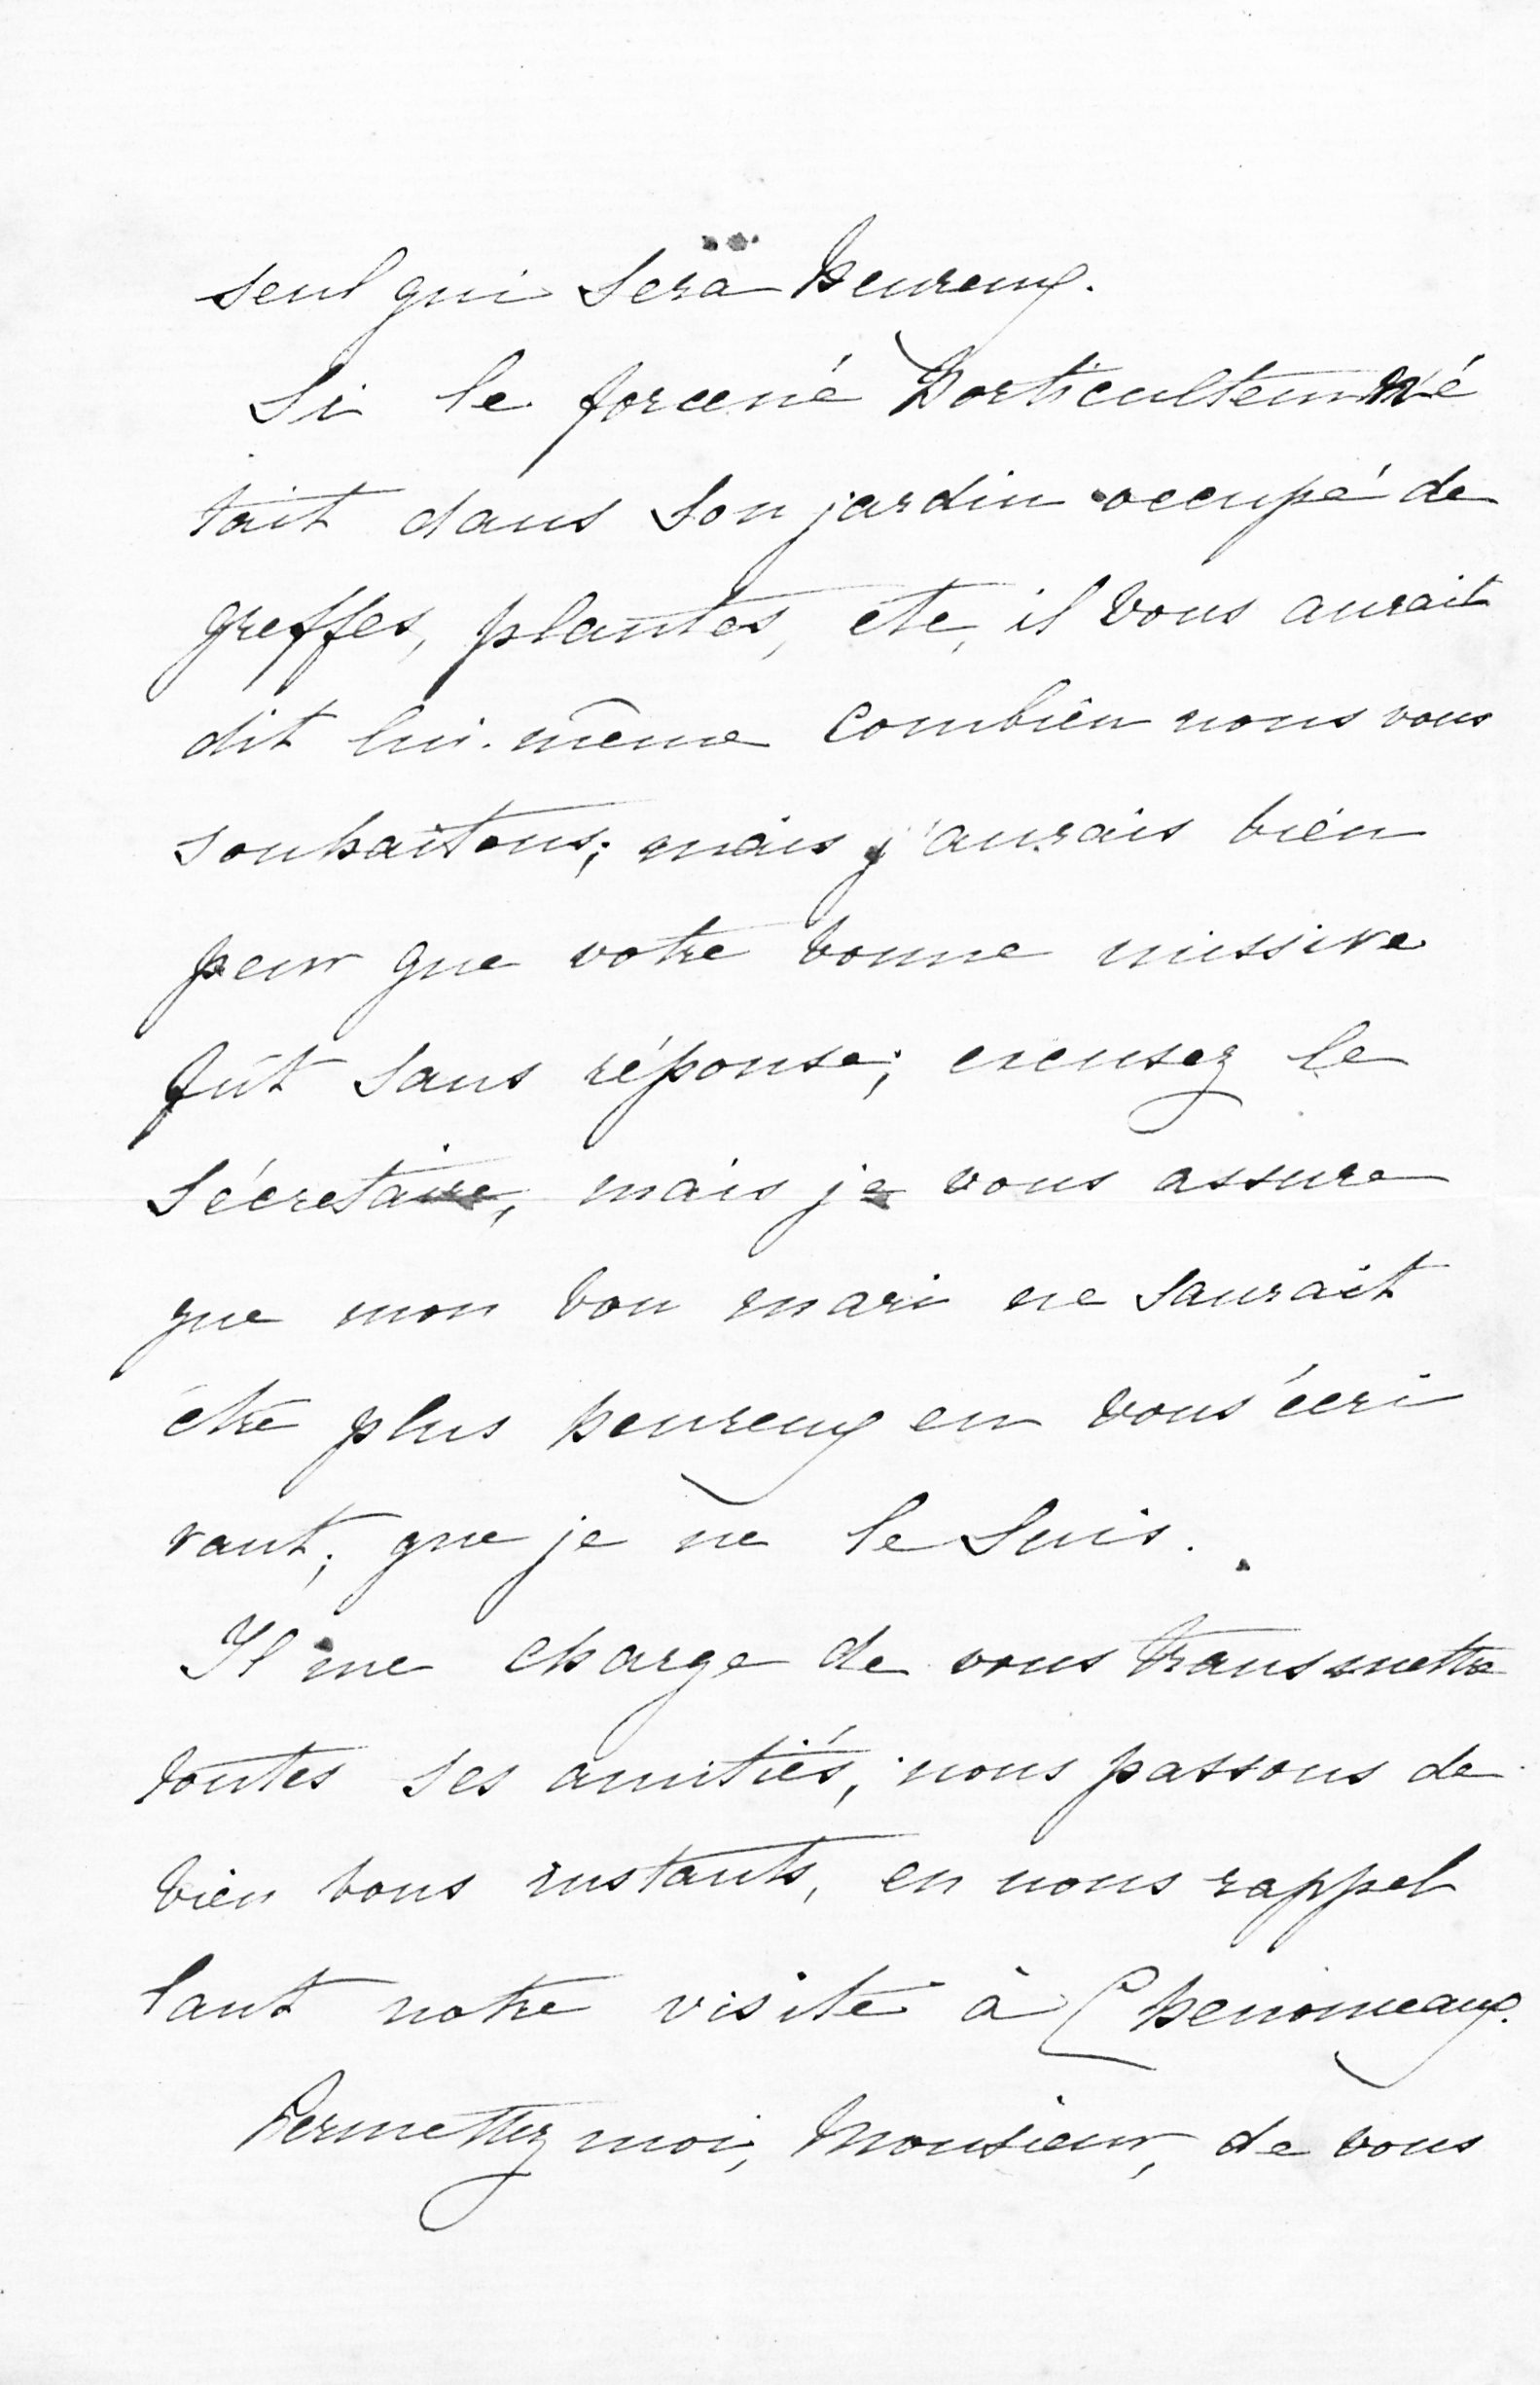 seul qui sera heureux.
Si le forcené horticulteur n'é
tait dans son jardin occupé de
greffes, plantes, etc, il vous aurait
dit lui-même combien nous vous
souhaitons; mais j'aurais bien
peur que votre bonne missive
fût sans réponse; excusez le
sécretaire, mais je vous assure
que mon bon mari ne saurait
être plus heureux en vous écri
vant, que je ne le suis.
Il me charge de vous transmettre
toutes ses amitiés, nous passons de
bien bons instants, en nous rappel
lant notre visite à Chenonceaux.
Permettez moi, Monsieur, de vous